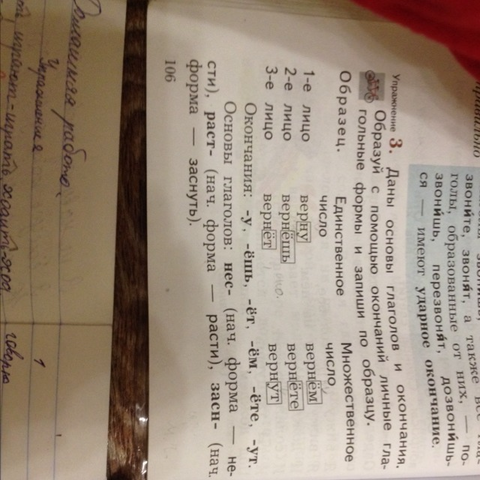 звоните, звонят, а также все гла-
голы, образованные от них, — по-
звонишь, перезвонят, дозвонишь-
ся — имеют ударное окончание.
Упражнение 3. Даны основы глаголов и окончания.
Образуй с помощью окончаний личные гла-
гольные формы и запиши по образцу.
Образец. Единственное Множественное
число число
1-е лицо верну вернём
2-е лицо вернёшь вернёте
3-е лицо вернёт вернут
Окончания: -у, -ёшь, -ёт, -ём, -ёте, -ут.
Основы глаголов: нес- (нач. форма — не-
сти), раст- (нач. форма — расти), засн- (нач.
форма — заснуть).
106
Домашняя работа.
Упражнение
играют-играть
говорю